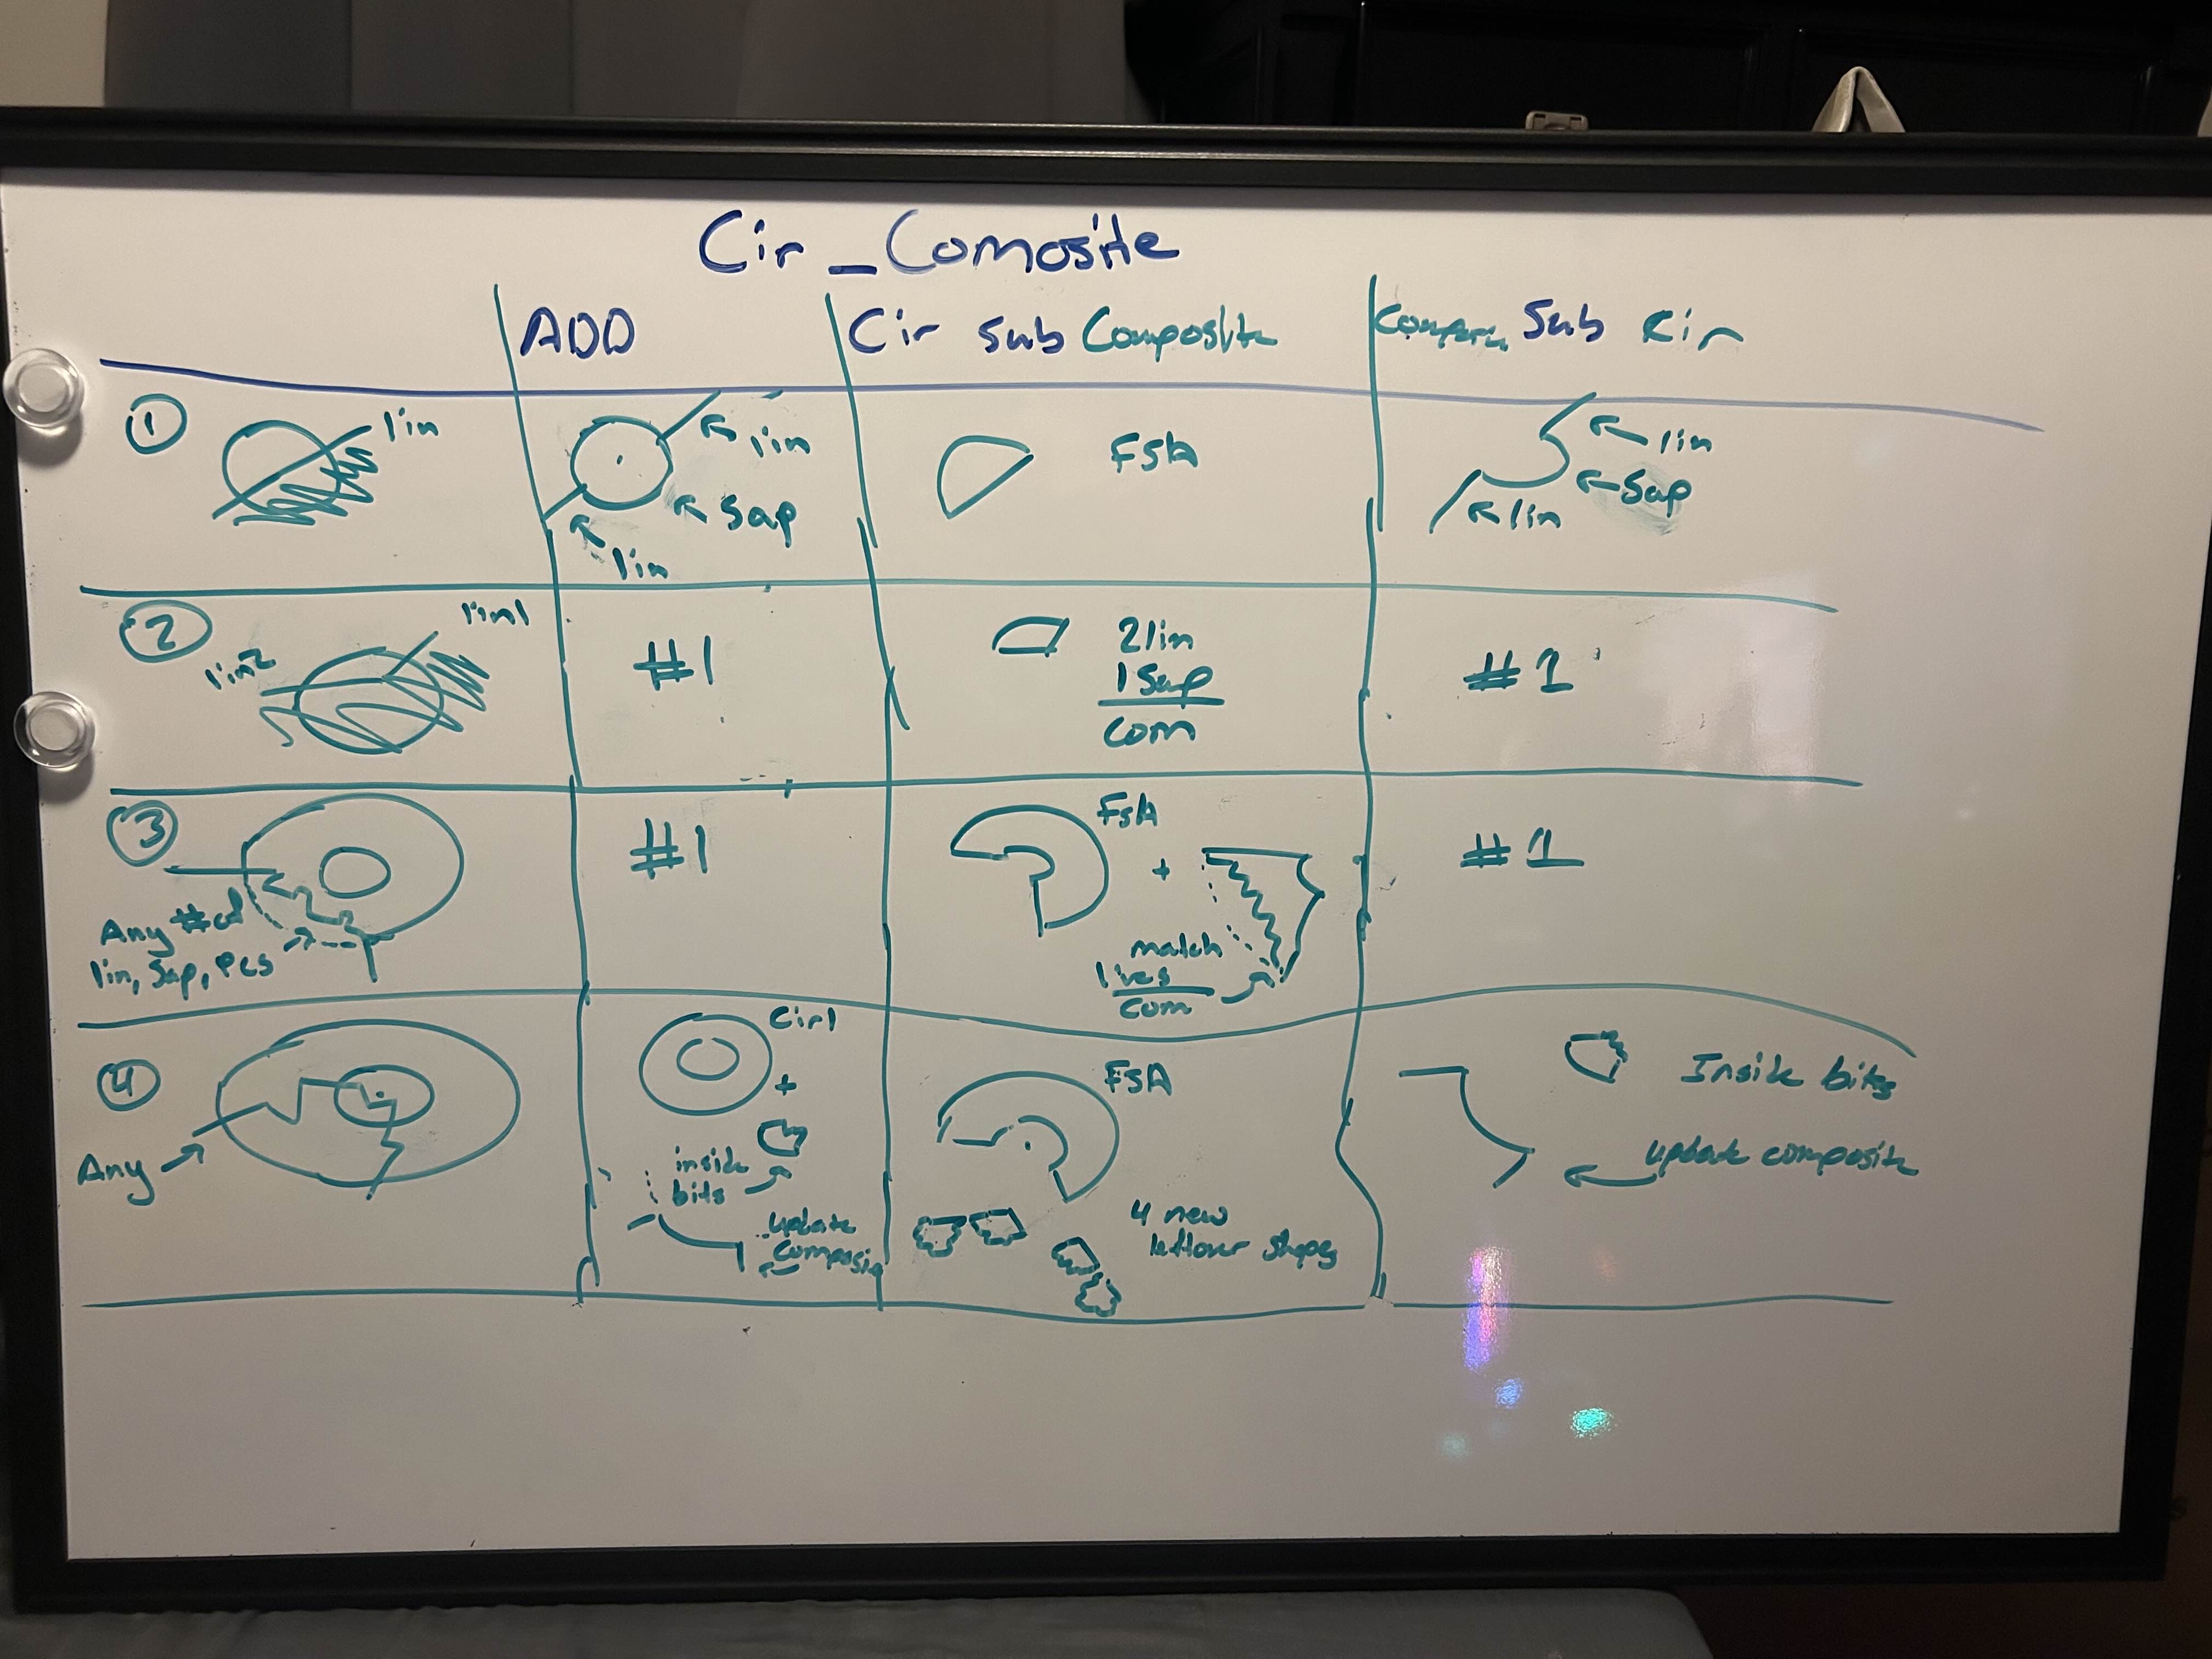 Cir_Comosite
ADD
Cir Sub Composite
Sub Cir
1
lin
lin
Sap
lin
FSA
lin
Sap
lin
2
lin1
lin2
#1
2lin
1Sap
com
#1
3
Any # of
lin, Sap, Pcs
#1
FSA
+
match
lines
com
#1
4
Any
Cir1
+
inside
bits
update
FSA
4 new
leftover shapes
Inside bits
update composite